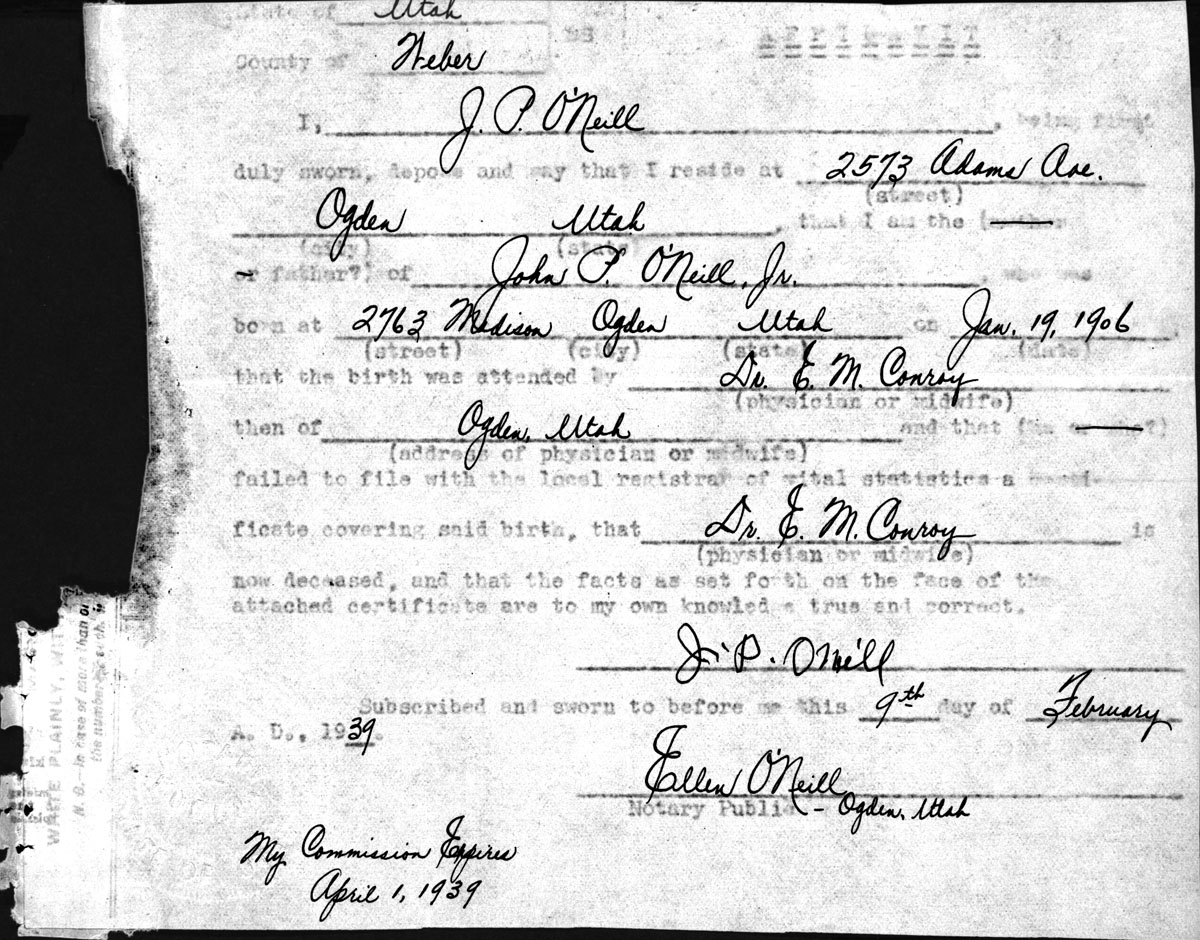 State of Utah
SS AFFIDAVIT
County of Weber
I, J. P. O'Neill, being first
duly sworn, depose and say that I reside at 2573 Adams Ave.
(street)
Ogden Utah, that I am the (mother
(city) (state)
or father?) of John P. O'Neill, Jr., who was
born at 2763 Madison Ogden Utah on Jan. 19, 1906.
(street) (city) (state) (date)
that the birth was attended by Dr. E. M. Conroy
(physician or midwife)
then of Ogden, Utah and that (he or she?)
(address of physician or midwife)
failed to file with the local registrar of vital statistics a certi-
ficate covering said birth, that Dr. E. M. Conroy is
(physician or midwife)
now deceased, and that the facts as set forth on the face of the
attached certificate are to my own knowledge true and correct.
J. P. O'Neill
Subscribed and sworn to before me this 9th day of February
A. D., 1939.
Ellen O'Neill
Notary Public - Ogden, Utah
My Commission Expires
April 1, 1939
WRITE PLAINLY, WIT
N. B.—In case of more than on
the number